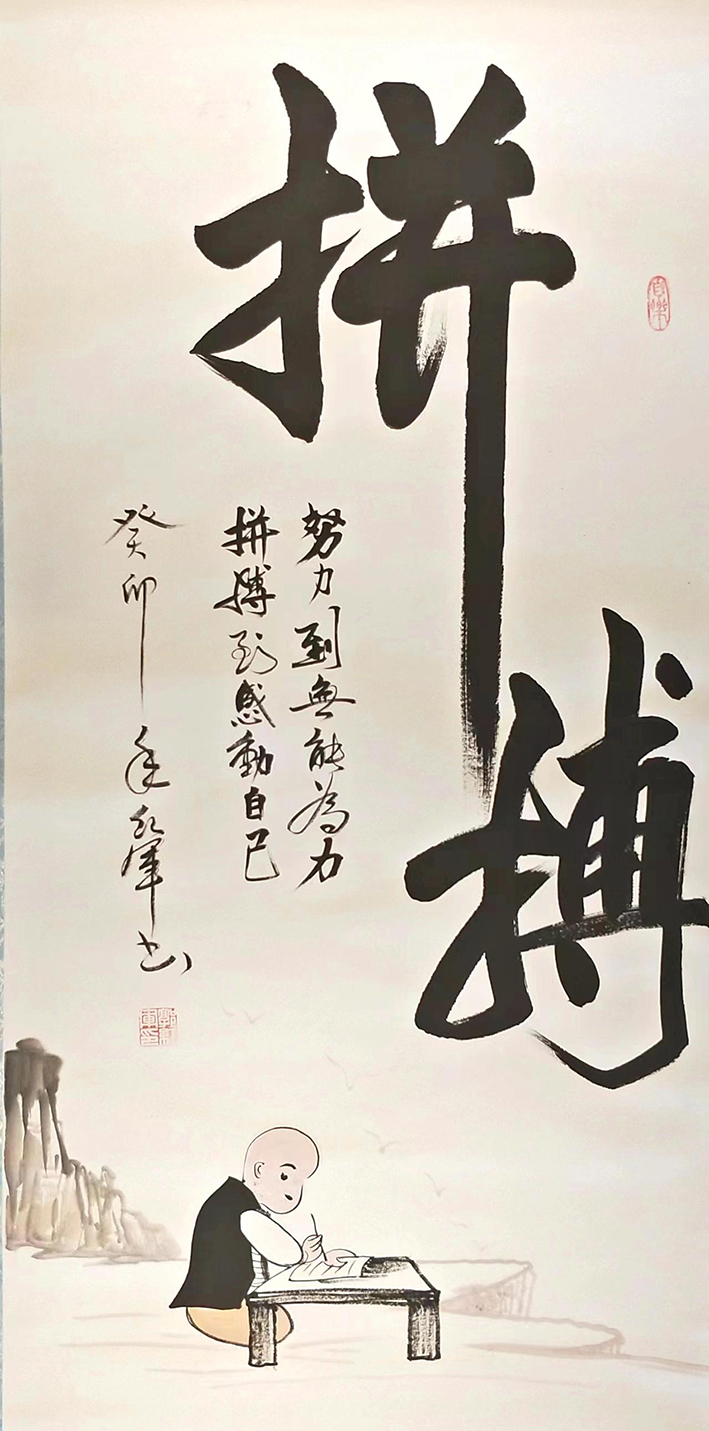 拼搏
努力到無能為力
拼搏到感動自己
癸卯年紅軍书